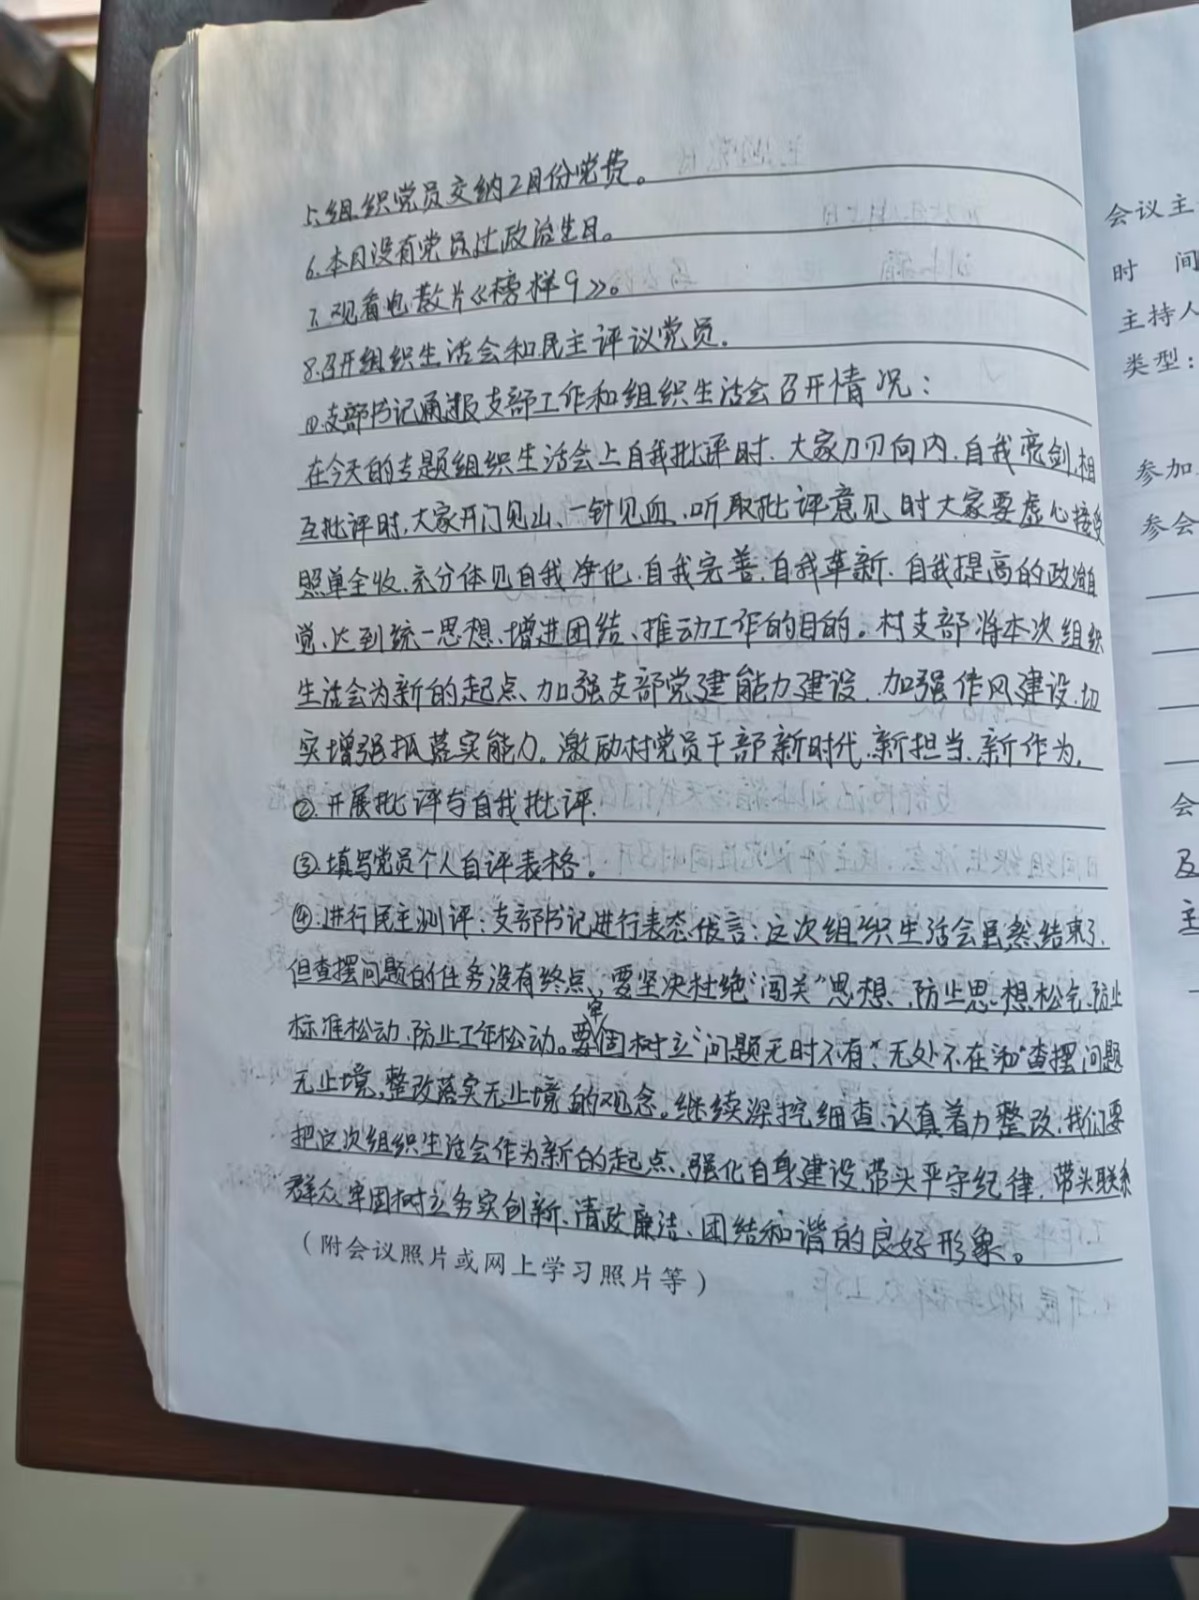 5.组织党员交纳2月份党费。
6.本月没有党员过政治生日。
7.观看电教片《榜样9》。
8.召开组织生活会和民主评议党员.
①.支部书记通报支部工作和组织生活会召开情况：
在今天的专题组织生活会上自我批评时、大家刀刃向内、自我亮剑,相
互批评时,大家开门见山、一针见血、听取批评意见时大家要虚心接受
照单全收.充分体见自我净化、自我完善、自我革新、自我提高的政治自
觉、达到统一思想、增进团结、推动工作的目的。村支部将本次组织
生活会为新的起点、加强支部党建能力建设、加强作风建设、切
实增强抓落实能力。激励村党员干部新时代、新担当、新作为.
②.开展批评与自我批评.
③.填写党员个人自评表格。
④.进行民主测评：支部书记进行表态发言：这次组织生活会虽然结束了、
但查摆问题的任务没有终点、要坚决杜绝“闯关”思想、防止思想松气、防止
标准松动、防止工作松动。要牢固树立“问题无时不有”、无处不在和“查摆问题
无止境,整改落实无止境的观念。继续深挖细查、认真着力整改,我们要
把这次组织生活会作为新的起点、强化自身建设,带头严守纪律,带头联系
群众,牢固树立务实创新、清政廉洁、团结和谐的良好形象。
（附会议照片或网上学习照片等）
会议主
时 间
主持人
类型：
参加
参会
会
及
主